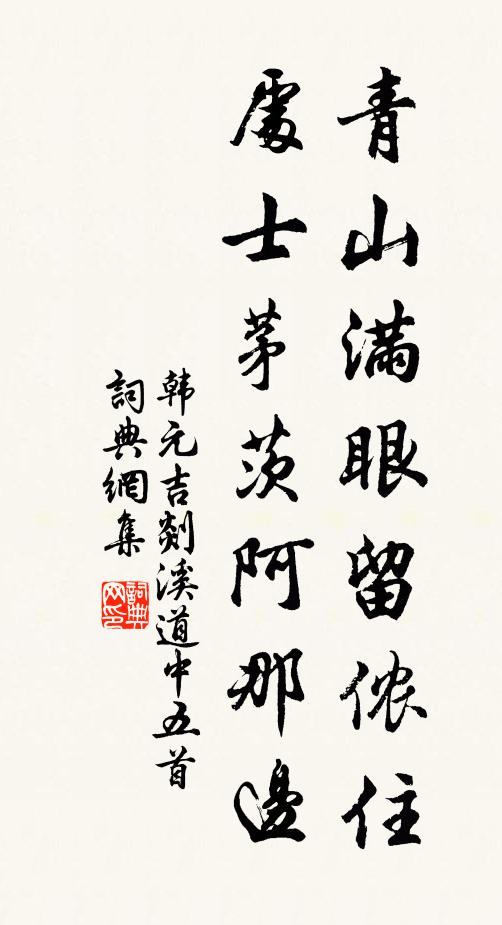 青山满眼留侬住
處士茅茨阿那邊
韩元吉剡溪道中五首
詞典網集
詞典网印